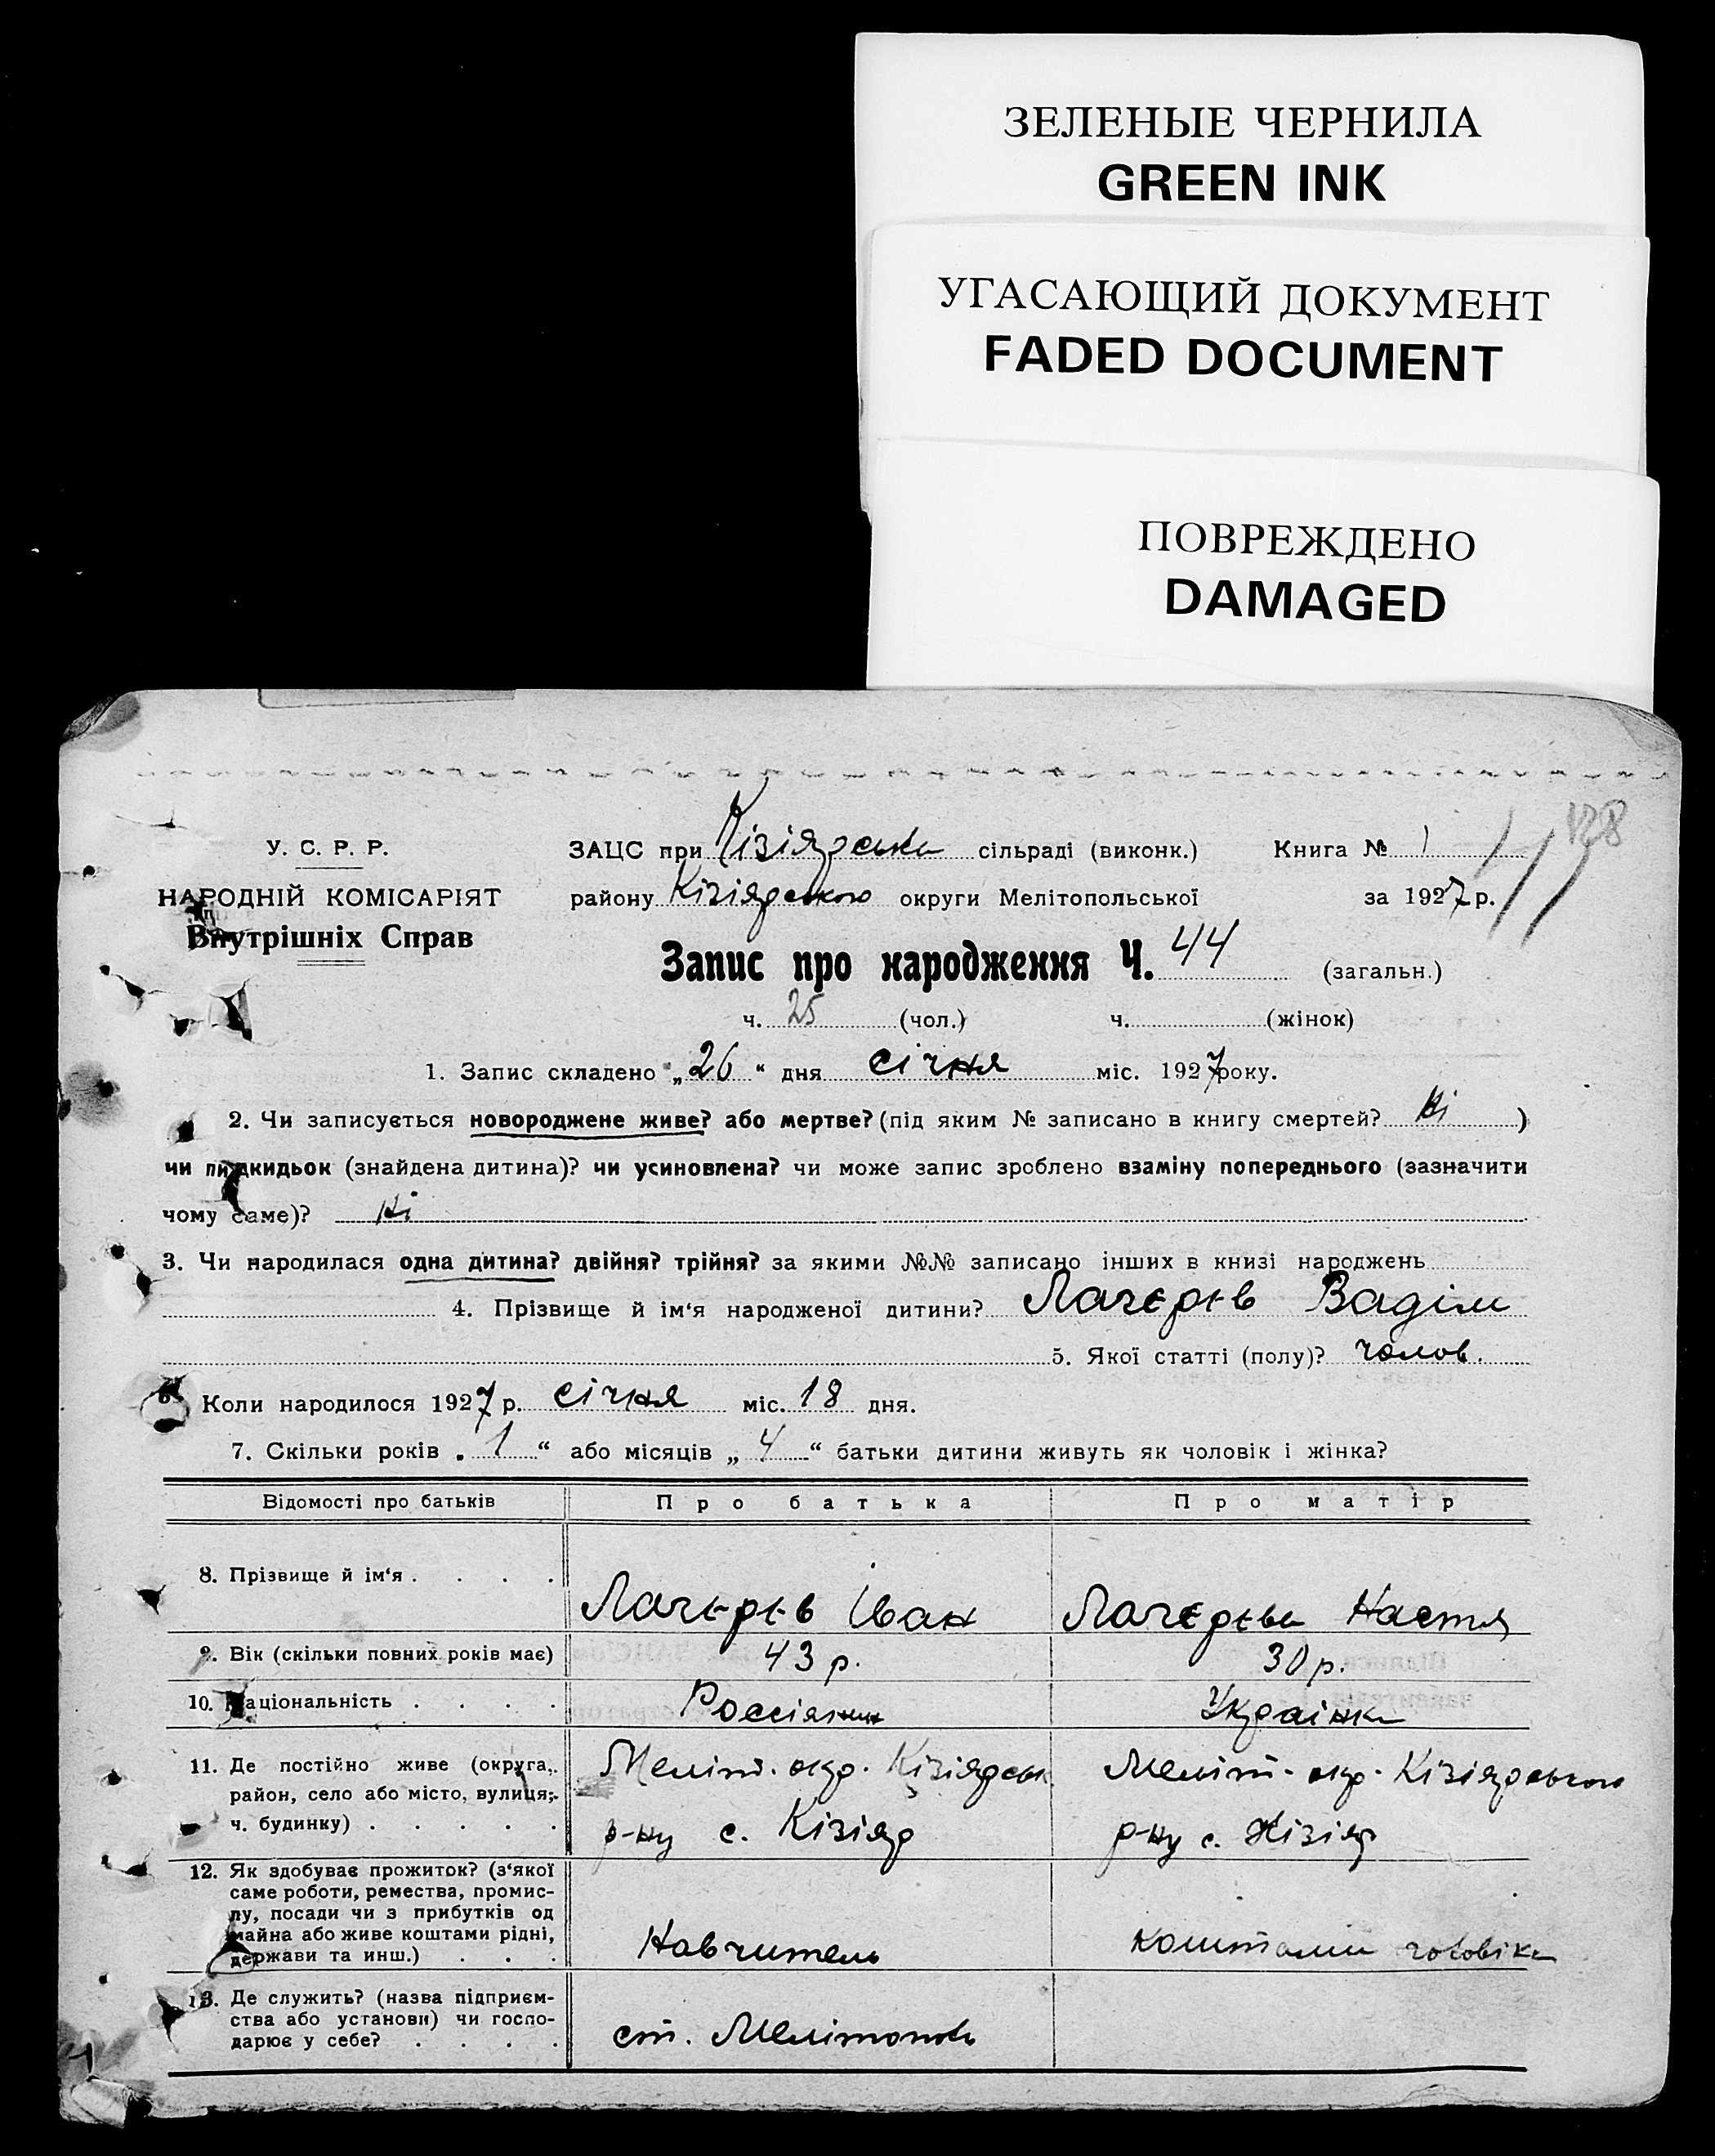 ЗЕЛЕНЫЕ ЧЕРНИЛА
GREEN INK
УГАСАЮЩИЙ ДОКУМЕНТ
FADED DOCUMENT
ПОВРЕЖДЕНО
DAMAGED
128
У. С. Р. Р.
НАРОДНІЙ КОМІСАРІЯТ
Внутрішніх Справ
ЗАЦС при Кізіярська сільраді (виконк.) Книга № 1
району Кізіярського округи Мелітопольської за 1927 р.
Запис про народження Ч. 44 (загальн.)
ч. 25 (чол.) ч. (жінок)
1. Запис складено „26“ дня січня міс. 1927 року.
2. Чи записується новороджене живе? або мертве? (під яким № записано в книгу смертей? Ні )
чи підкидьок (знайдена дитина)? чи усиновлена? чи може запис зроблено взаміну попереднього (зазначити
чому саме)? Ні
3. Чи народилася одна дитина? двійня? трійня? за якими №№ записано інших в книзі народжень
4. Прізвище й ім‘я народженої дитини? Лачєрєв Вадім
5. Якої статті (полу)? чолов.
6. Коли народилося 1927 р. січня міс. 18 дня.
7. Скільки років „1“ або місяців „4“ батьки дитини живуть як чоловік і жінка?
Відомості про батьків Про батька Про матір
8. Прізвище й ім‘я . . . . Лачєрєв Іван Лачєрєва Настя
9. Вік (скільки повних років має) 43 р. 30 р.
10. Національність . . . . Россіянин Українка
11. Де постійно живе (округа, Меліт. окр. Кізіярськ Меліт. окр. Кізіярського
район, село або місто, вулиця;
ч. будинку) . . . . . р-ну с. Кізіяр р-ну с. Кізіяр
12. Як здобуває прожиток? (з‘якої
саме роботи, ремества, промис-
лу, посади чи з прибутків од
майна або живе коштами рідні, Навчитель коштами чоловіка
держави та инш.) . . .
13. Де служить? (назва підприєм-
ства або установи) чи госпо- ст. Мелітополь
дарює у себе? . . . .